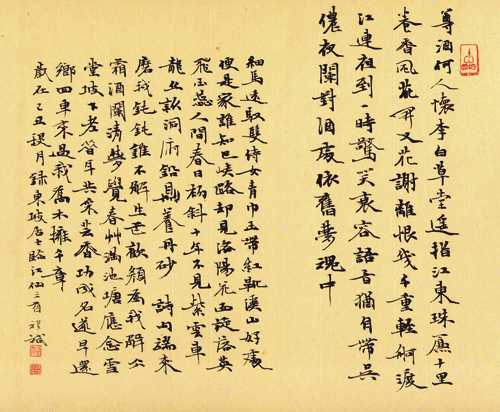 尊酒何人懷李白草堂遥指江東珠簾十里
卷香風花開又花謝離恨幾千重輕舸渡
江連夜到一時驚笑衰容語音猶自帶吳
儂夜闌對酒處依舊夢魂中
細馬遠馱雙侍女青巾玉帶紅靴溪山好處
便是家誰知巴峽路却見洛陽花面旋落英
飛玉蕊人間春日初斜十年不見紫雲車
龍丘新洞府鉛鼎養丹砂 詩句端來
磨我鈍鈍錐不解生芒歡顏爲我解冰
霜酒闌清夢覺春草滿池塘應念雪
堂坡下老昔年共采芸香功成名遂早還
鄉回車來過我喬木擁千章
歲在丑月錄東坡居士臨江仙三首